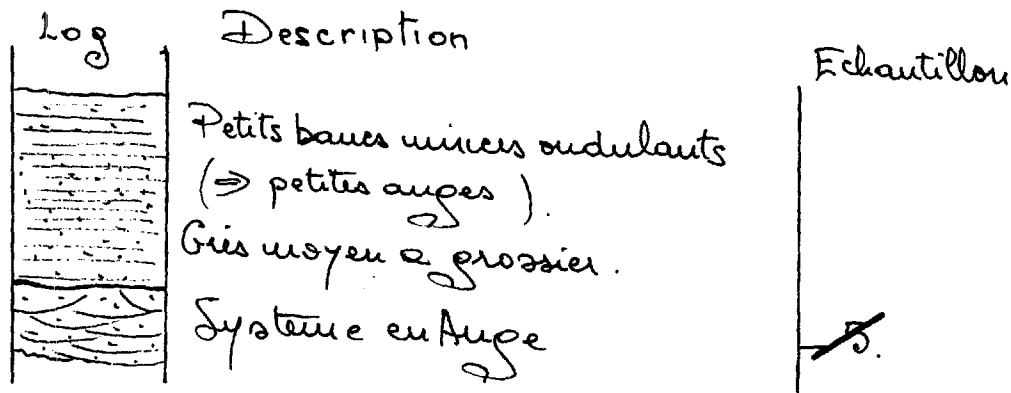 Log Description Echantillon
Petits bancs minces ondulants
(⇒ petites auges).
Grès moyen a grossier.
Système en Auge